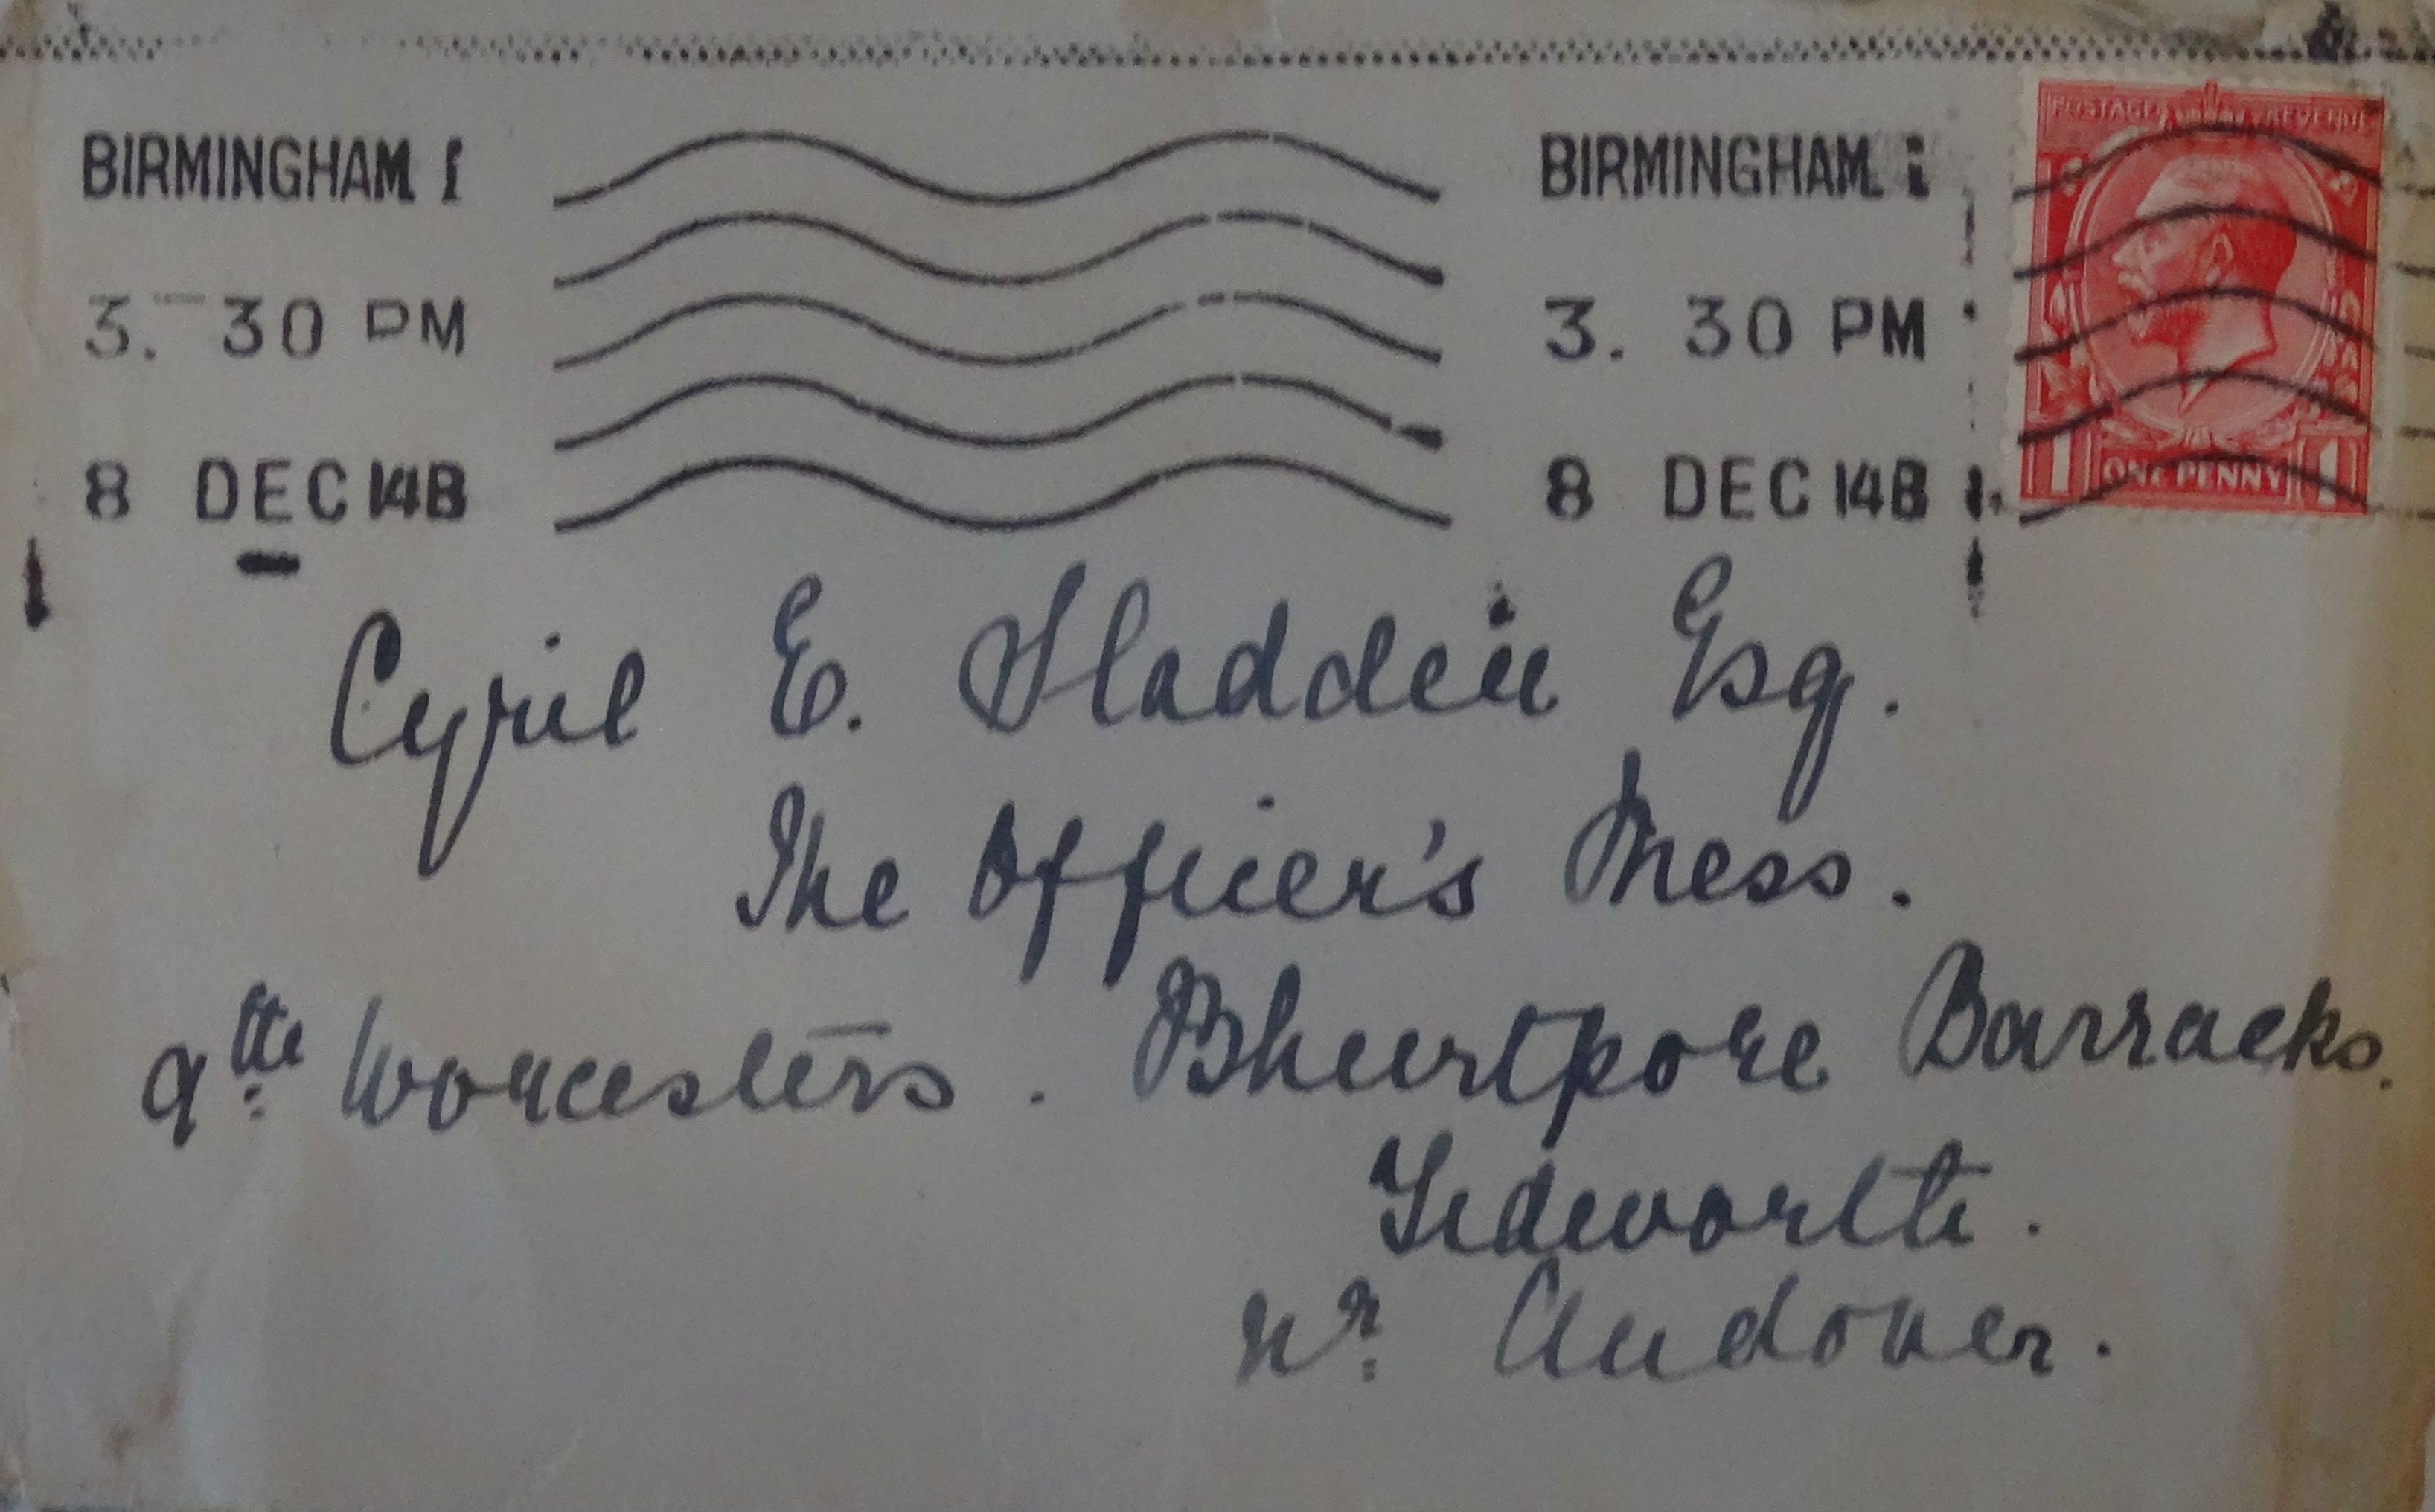 BIRMINGHAM 1 BIRMINGHAM 1
3. 30 PM 3. 30 PM
8 DEC 14B 8 DEC 14B
POSTAGE REVENUE
1 ONE PENNY 1
Cyril E. Sladden Esq.
The Officer's Mess.
9th Worcesters. Bhurtpore Barracks.
Tidworth.
Nr. Andover.